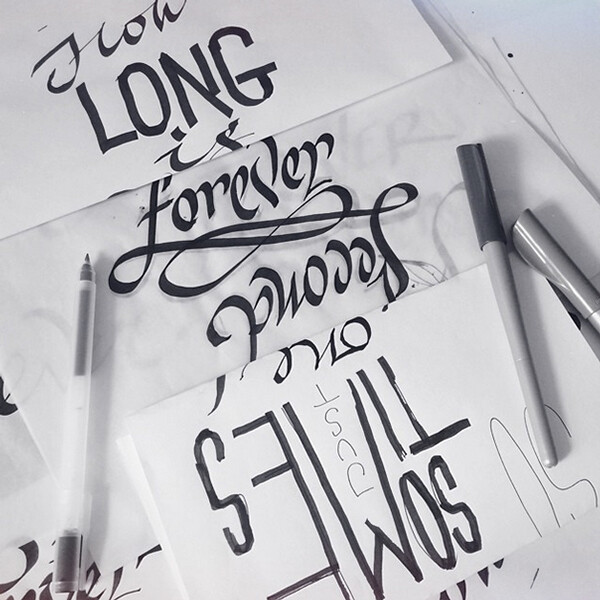 How
LONG
is
forever
SOME
TIMES
just
one
Second